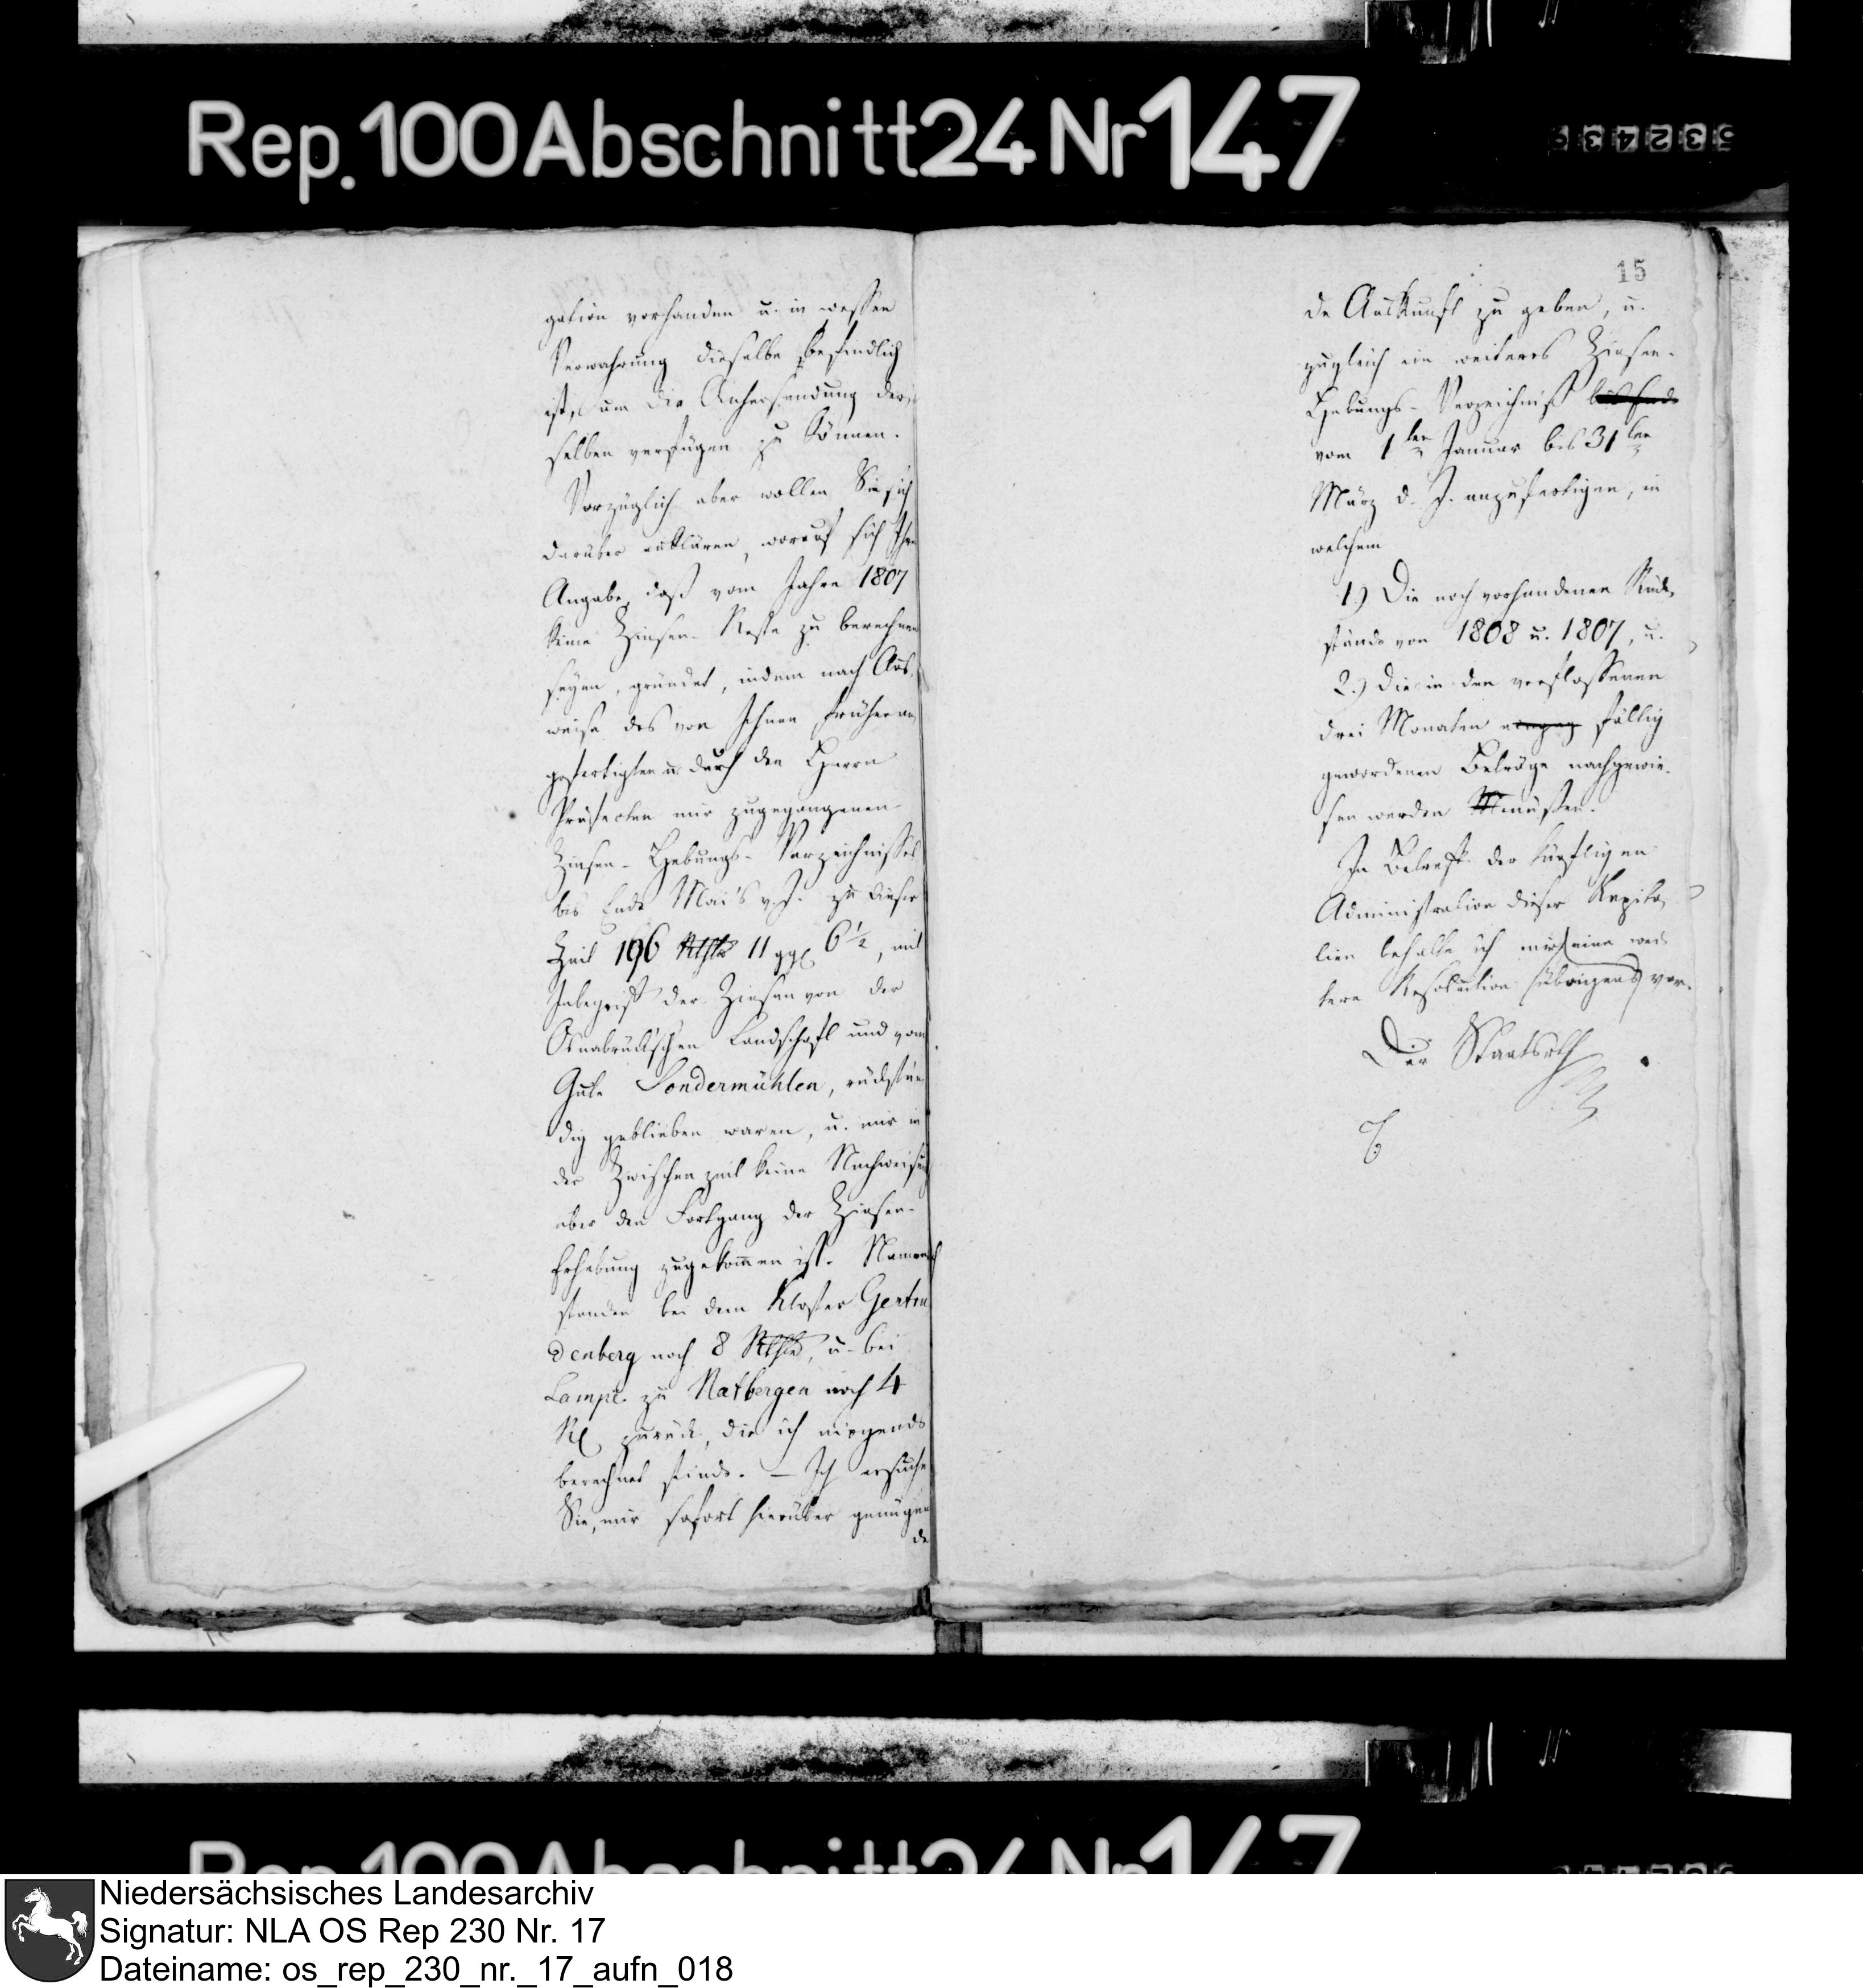 Rep.100Abschnitt24Nr147
532436
gation vorhanden u. in wessen
Verwahrung dieselbe befindlich
ist, um die Anhersendung der-
selben verfügen zu können.
Vorzüglich aber wollen Sie sich
darüber erklären, worauf sich Ihre
Angabe, daß vom Jahre 1807
keine Zinsen-Reste zu berechnen
seyen, gründet, indem nach Aus-
weise des von Ihnen früher an-
gefertigten u. durch den Herrn
Präfecten mir zugegangenen
Zinsen-Hebungs-Verzeichnisses
bis Ende Mai's v. J. zu dieser
Zeit 196 Rthlr 11 ggl 6 1/2, mit
Inbegriff der Zinsen von der
Osnabrückschen Landschaft und vom
Gute Sondermühlen, rückstän-
dig geblieben waren, u. mir in
der Zwischenzeit keine Nachweisung
über den Fortgang der Zinsen-
Erhebung zugekommen ist.
standen bei dem Kloster Gertru
denberg noch 8 Rthlr, u. bei
Lampe zu Natbergen noch 4
Rl zurück, die ich nirgends
berechnet finde. – Ich ersuche
Sie, mir sofort hierüber genügen
de
15
de Auskunft zu geben, u.
zugleich ein weiteres Zinsen-
Hebungs-Verzeichniß bis Ende
vom 1ten Januar bis 31ten
März d. J. anzufertigen, in
welchem
1.) Die noch vorhandenen Rück-
stände von 1808 u. 1807, u.
2.) Die in den verflossenen
drei Monaten fällig
gewordenen Beträge nachgewie-
sen werden müssen.
In Betreff der künftigen
Administration dieser Kapita-
lien behalte ich mir eine wei-
tere Resolution (übrigens) vor.
Der Staatsrth
Rep.100Abschnitt24Nr147
Niedersächsisches Landesarchiv
Signatur: NLA OS Rep 230 Nr. 17
Dateiname: os_rep_230_nr._17_aufn_018